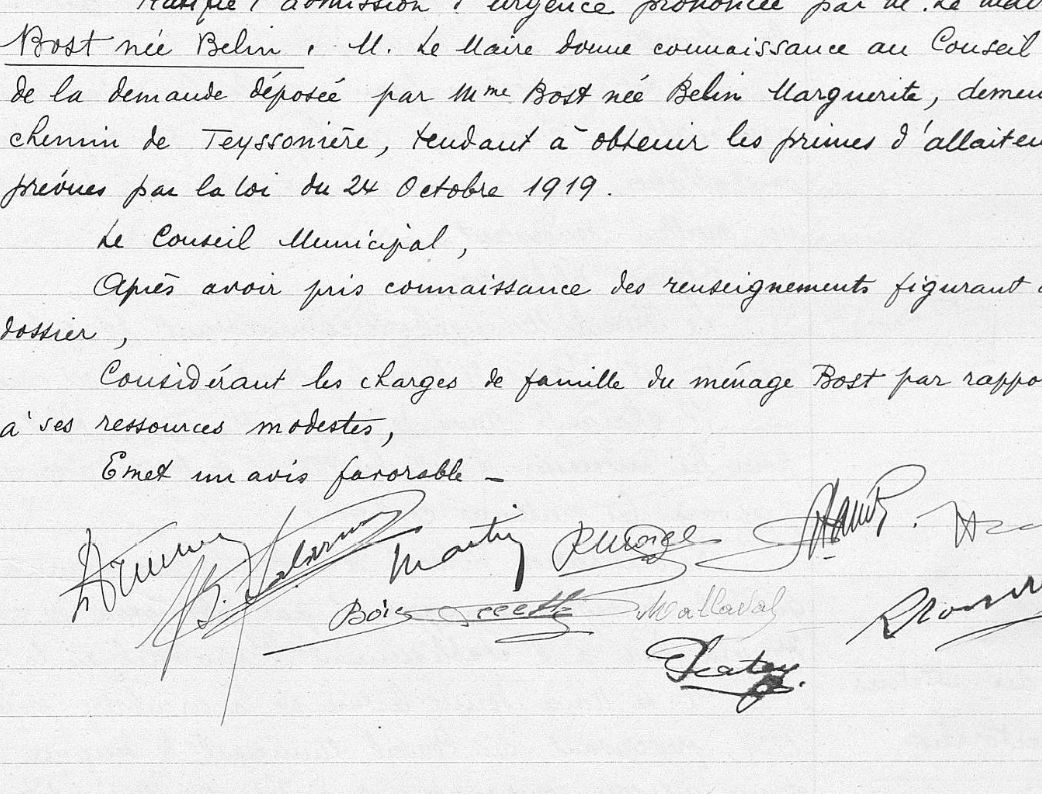 Ratifie l'admission d'urgence prononcée par M. Le Mai
Bost née Belin. M. Le Maire donne connaissance au Conseil
de la demande déposée par Mme Bost née Belin Marguerite, demeu
chemin de Teyssonière, tendant à obtenir les primes d'allaitem
prévues par la loi du 24 Octobre 1919.
Le Conseil Municipal,
Après avoir pris connaissance des renseignements figurant
dossier,
Considérant les charges de famille du ménage Bost par rappo
à ses ressources modestes,
Emet un avis favorable -
Martin
Bois Mallaval